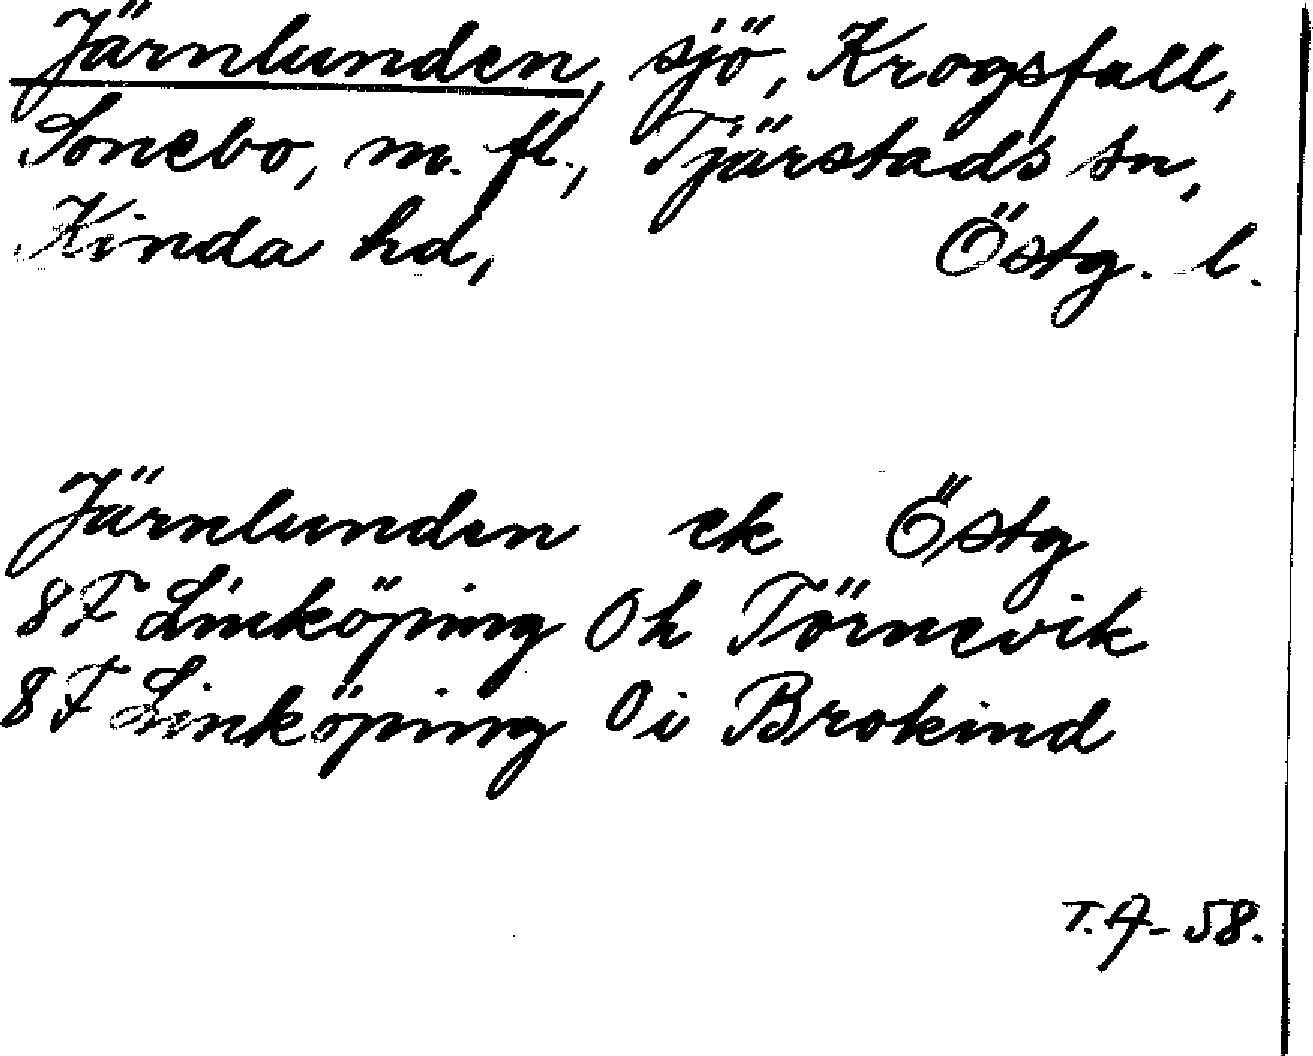 Järnlunden, sjö, Krogsfall,
Sonebo, m. fl., Tjärstads sn,
Kinda hd, Östg. l.
Järnlunden ek Östg
8F Linköping 0h Törnevik
8F Linköping 0i Brokind
T.A- 58.